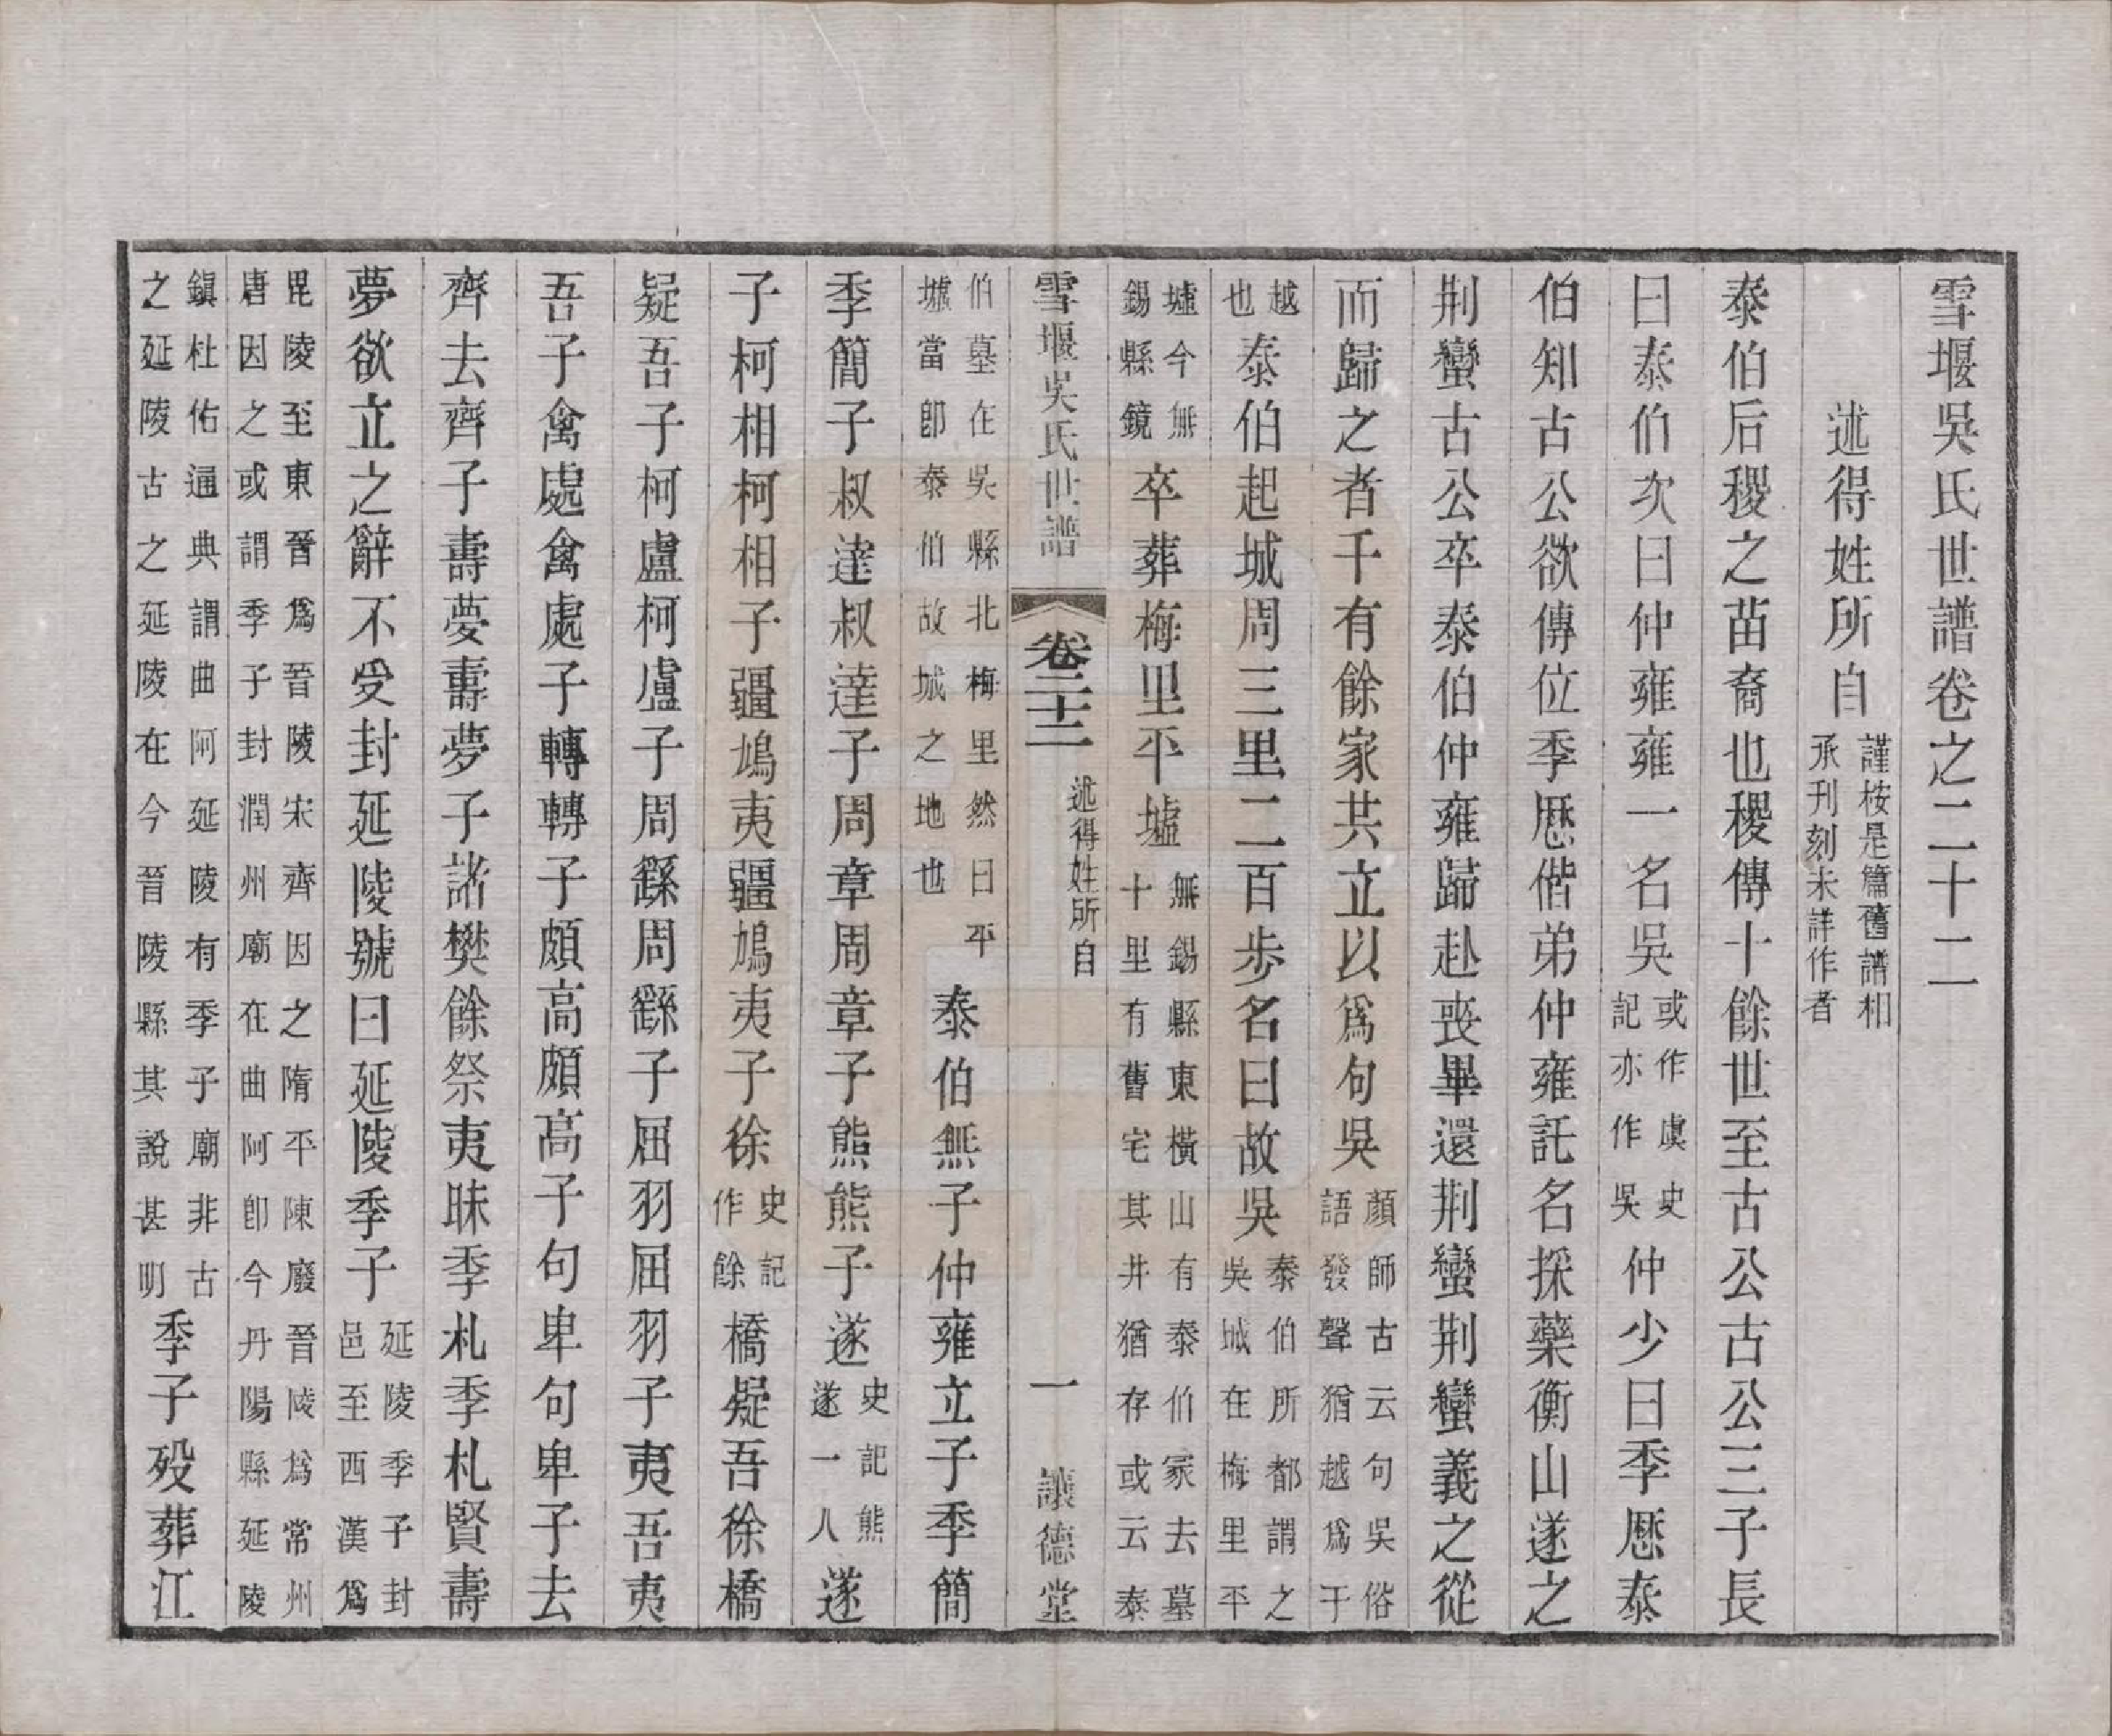 雪堰吳氏世譜卷之二十二
述得姓所自謹桉是篇舊譜相承刋刻未詳作者
泰伯后稷之苗裔也稷傳十餘世至古公古公三子長
曰泰伯次曰仲雍雍一名吳或作虞史記亦作吳仲少曰季厯泰
伯知古公欲傳位季厯偕弟仲雍託名採藥衡山遂之
荆蠻古公卒泰伯仲雍歸赴喪畢還荆蠻荆蠻義之從
而歸之者千有餘家共立以爲句吳顏師古云句吳俗語發聲猶越爲于
越也泰伯起城周三里二百步名曰故吳泰伯所都謂之吳城在梅里平
墟今無錫縣鏡卒葬梅里平墟無錫縣東橫山有泰伯冢去墓十里有舊宅其井猶存或云泰
雪堰吳氏世譜 卷二十二 述得姓所自 一 讓德堂
伯墓在吳縣北梅里然曰平墟當卽泰伯故城之地也 泰伯無子仲雍立子季簡
季簡子叔達叔達子周章周章子熊熊子遂史記熊遂一人遂
子柯相柯相子彊鳩夷彊鳩夷子徐史記作餘橋疑吾徐橋
疑吾子柯盧柯盧子周繇周繇子屈羽屈羽子夷吾夷
吾子禽處禽處子轉轉子頗高頗高子句卑句卑子去
齊去齊子壽夢壽夢子諸樊餘祭夷昧季札季札賢壽
夢欲立之辭不受封延陵號曰延陵季子延陵季子封邑至西漢爲
毘陵至東晉爲晉陵宋齊因之隋平陳廢晉陵爲常州唐因之或謂季子封潤州廟在曲阿卽今丹陽縣延陵
鎭杜佑通典謂曲阿延陵有季子廟非古之延陵古之延陵在今晉陵縣其說甚明季子殁葬江